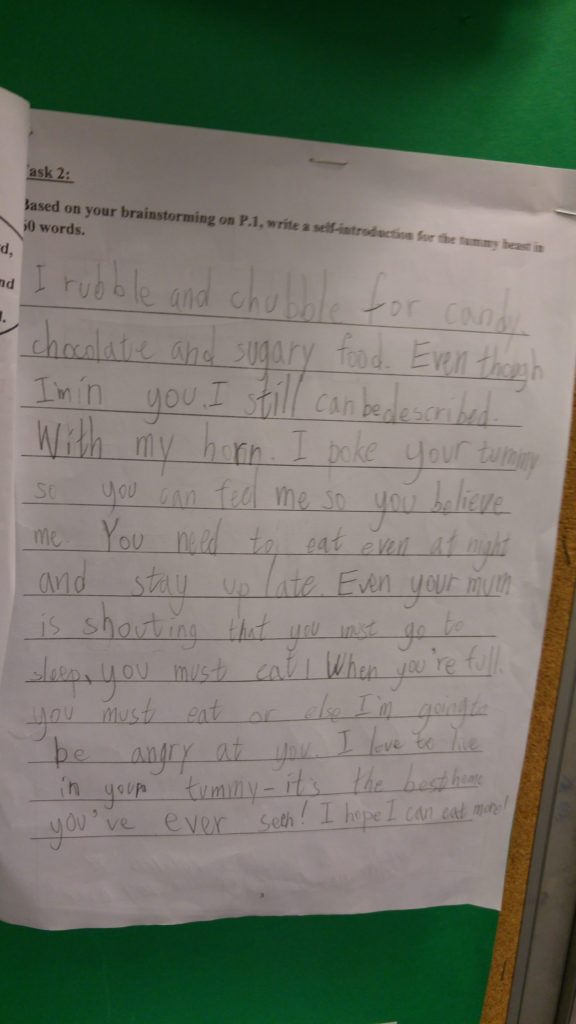 ask 2:
Based on your brainstorming on P.1, write a self-introduction for the tummy beast in
50 words.
d,
nd
I rubble and chubble for candy,
chocolate and sugary food. Even though
I'm in you, I still can be described.
With my horn. I poke your tummy
so you can feel me so you believe
me. You need to eat even at night
and stay up late. Even your mum
is shouting that you must go to
sleep, you must eat! When you're full.
you must eat or else I'm going to
be angry at you. I love to live
in your tummy - it's the best home
you've ever seen! I hope I can eat more!